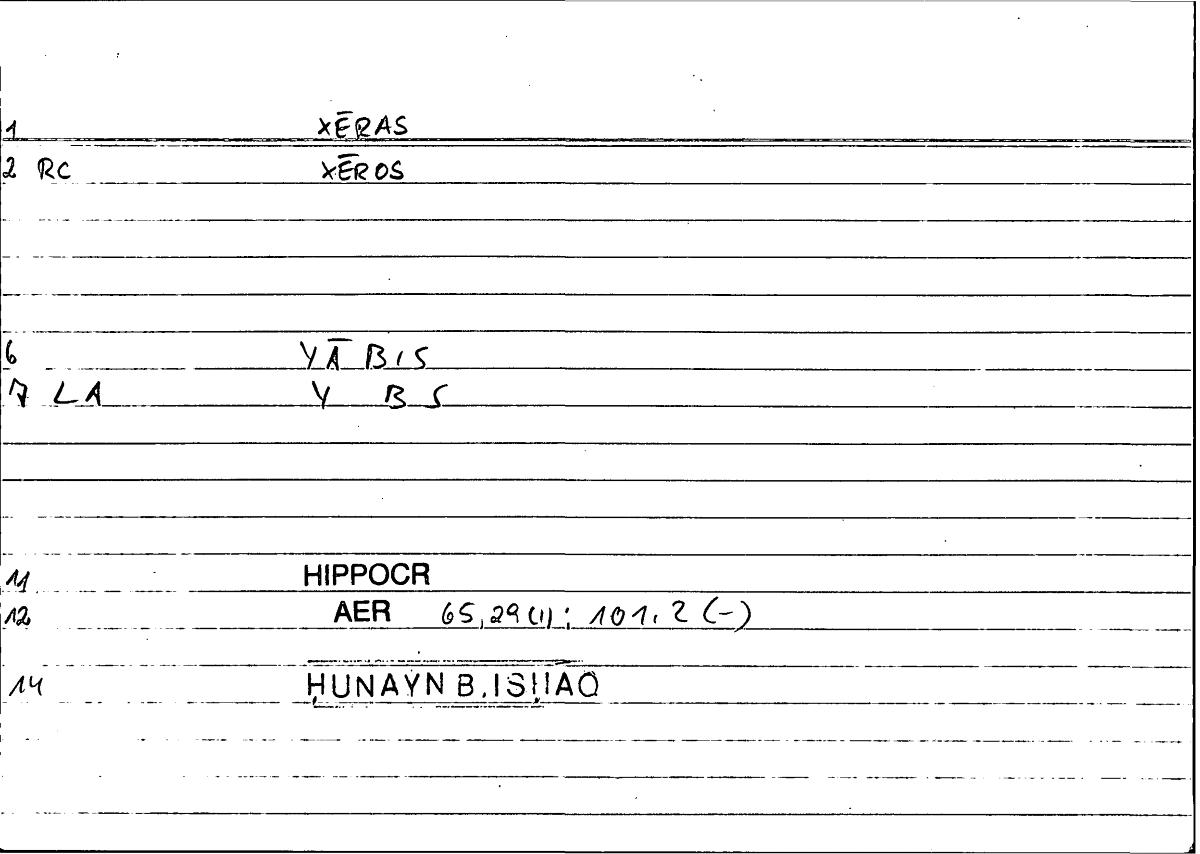 1 XĒRAS
2 RC XĒROS
6 YĀBIS
7 LA Y B S
11 HIPPOCR
12 AER 65,29(1); 101.2 (-)
14 ḤUNAYN B.ISḤAQ